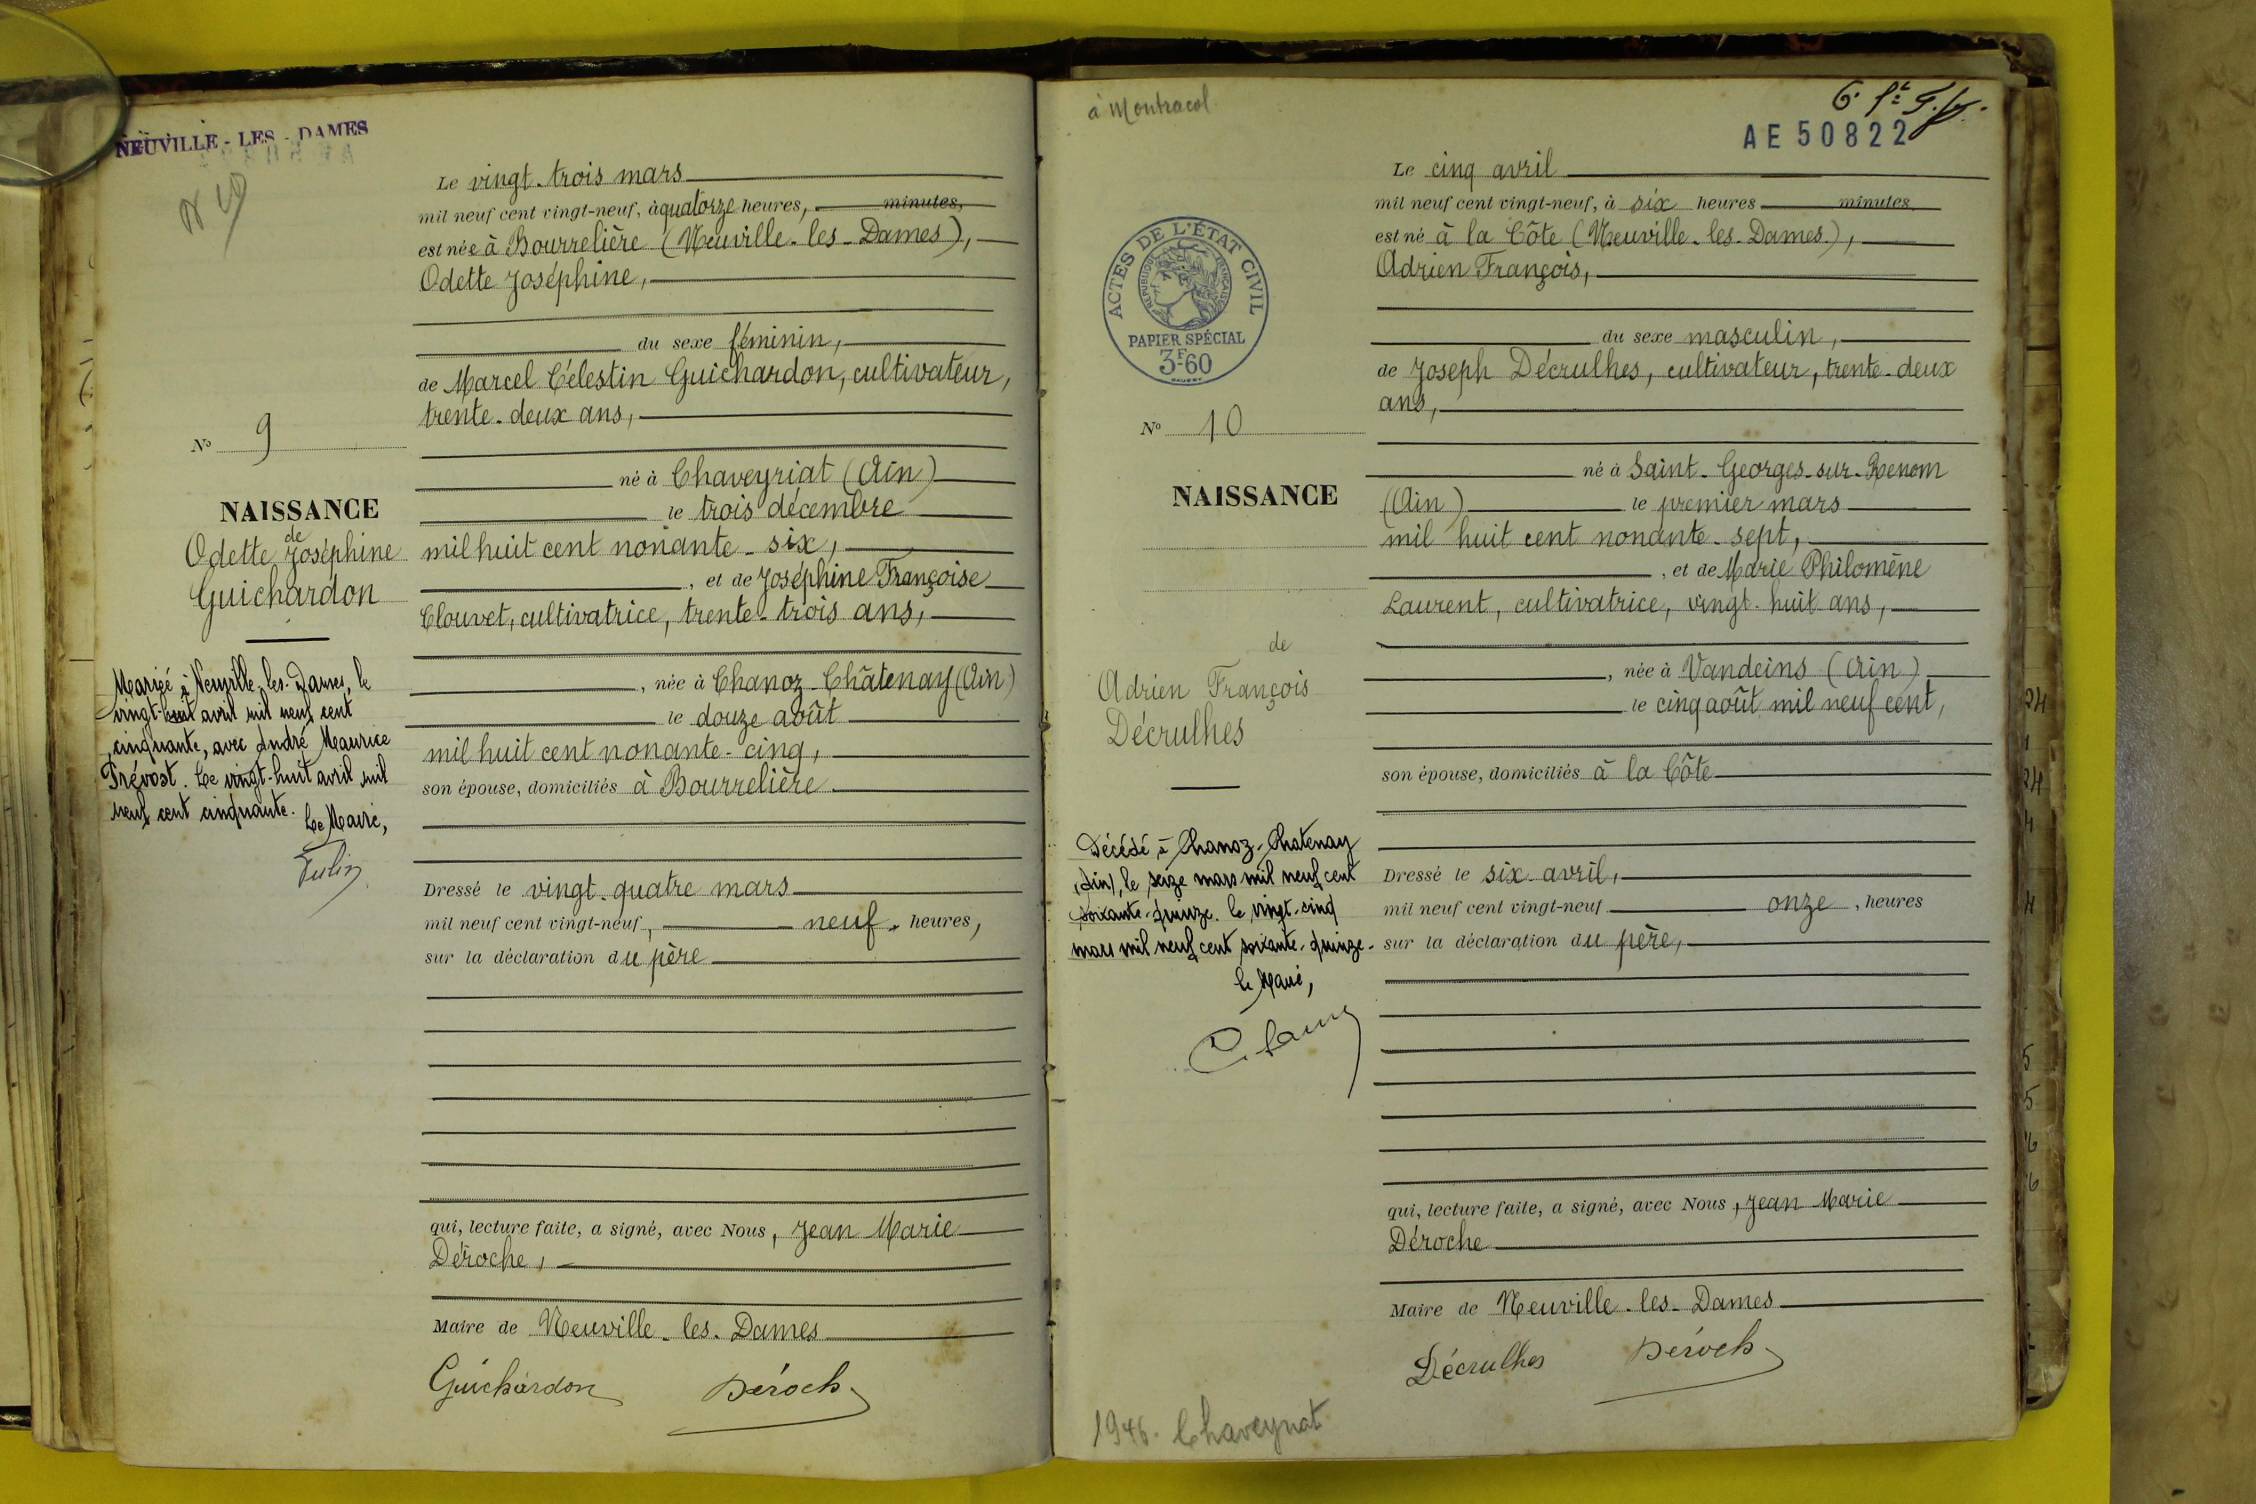 NEUVILLE - LES - DAMES
Le vingt-trois mars
mil neuf cent vingt-neuf, à quatorze heures, minutes,
est née à Bourrelière (Neuville-les-Dames),
Odette Joséphine,
du sexe féminin,
de Marcel Célestin Guichardon, cultivateur,
trente-deux ans,
né à Chaveyriat (Ain)
le trois décembre
mil huit cent nonante-six,
, et de Joséphine Françoise
Clouvet, cultivatrice, trente-trois ans,
, née à Chanoz-Châtenay (Ain)
le douze août
mil huit cent nonante-cinq,
son épouse, domiciliés à Bourrelière
Dressé le vingt-quatre mars
mil neuf cent vingt-neuf, neuf, heures,
sur la déclaration du père
qui, lecture faite, a signé, avec Nous, Jean Marie
Déroche,
Maire de Neuville-les-Dames
Guichardon Déroche
N° 9
NAISSANCE
de
Odette Joséphine
Guichardon
Mariée à Neuville-les-Dames, le
vingt-huit avril mil neuf cent
cinquante, avec André Maurice
Prévost. Le vingt-huit avril mil
neuf cent cinquante.
Le Maire,
à Montracol
AE 50822
Le cinq avril
mil neuf cent vingt-neuf, à six heures minutes
est né à la Côte (Neuville-les-Dames),
Adrien François,
du sexe masculin,
de Joseph Décrulhes, cultivateur, trente-deux
ans,
né à Saint-Georges-sur-Renom
(Ain) le premier mars
mil huit cent nonante-sept,
, et de Marie Philomène
Laurent, cultivatrice, vingt-huit ans,
, née à Vandeins (Ain)
le cinq août mil neuf cent,
son épouse, domiciliés à la Côte
Dressé le six avril,
mil neuf cent vingt-neuf onze, heures
sur la déclaration du père,
qui, lecture faite, a signé, avec Nous, Jean Marie
Déroche
Maire de Neuville-les-Dames
Décrulhes Déroche
ACTES DE L'ÉTAT CIVIL
RÉPUBLIQUE FRANÇAISE
PAPIER SPÉCIAL
3F60
N° 10
NAISSANCE
de
Adrien François
Décrulhes
Décédé à Chanoz-Chatenay
(Ain), le seize mars mil neuf cent
soixante-quinze. Le vingt-cinq
mars mil neuf cent soixante-quinze.
Le Maire,
1946. Chaveyriat